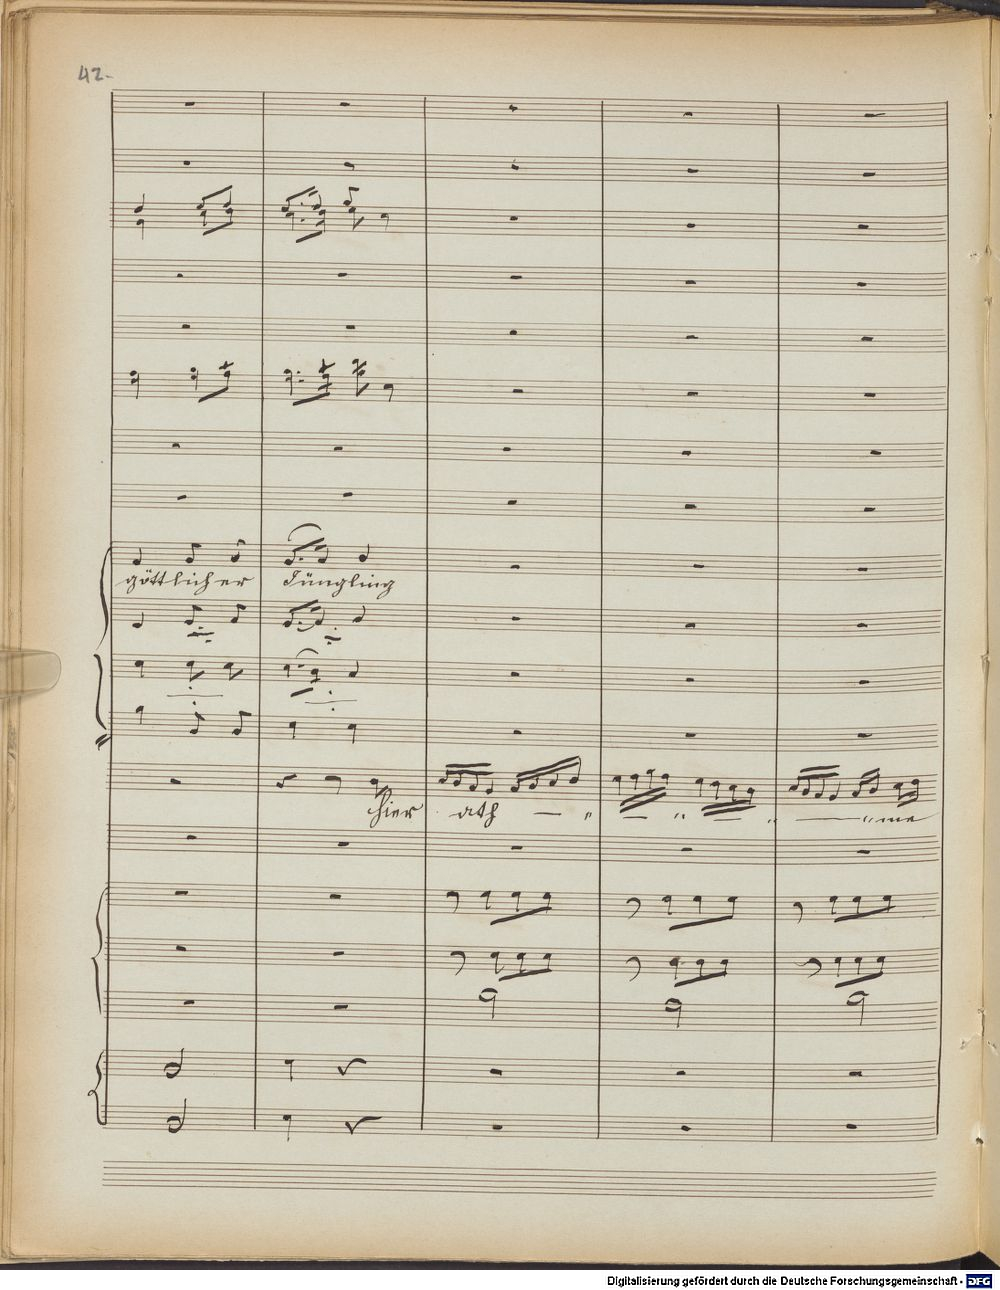 42.
göttlicher Jüngling
hier ath - " - " - " - " me
Digitalisierung gefördert durch die Deutsche Forschungsgemeinschaft - DFG